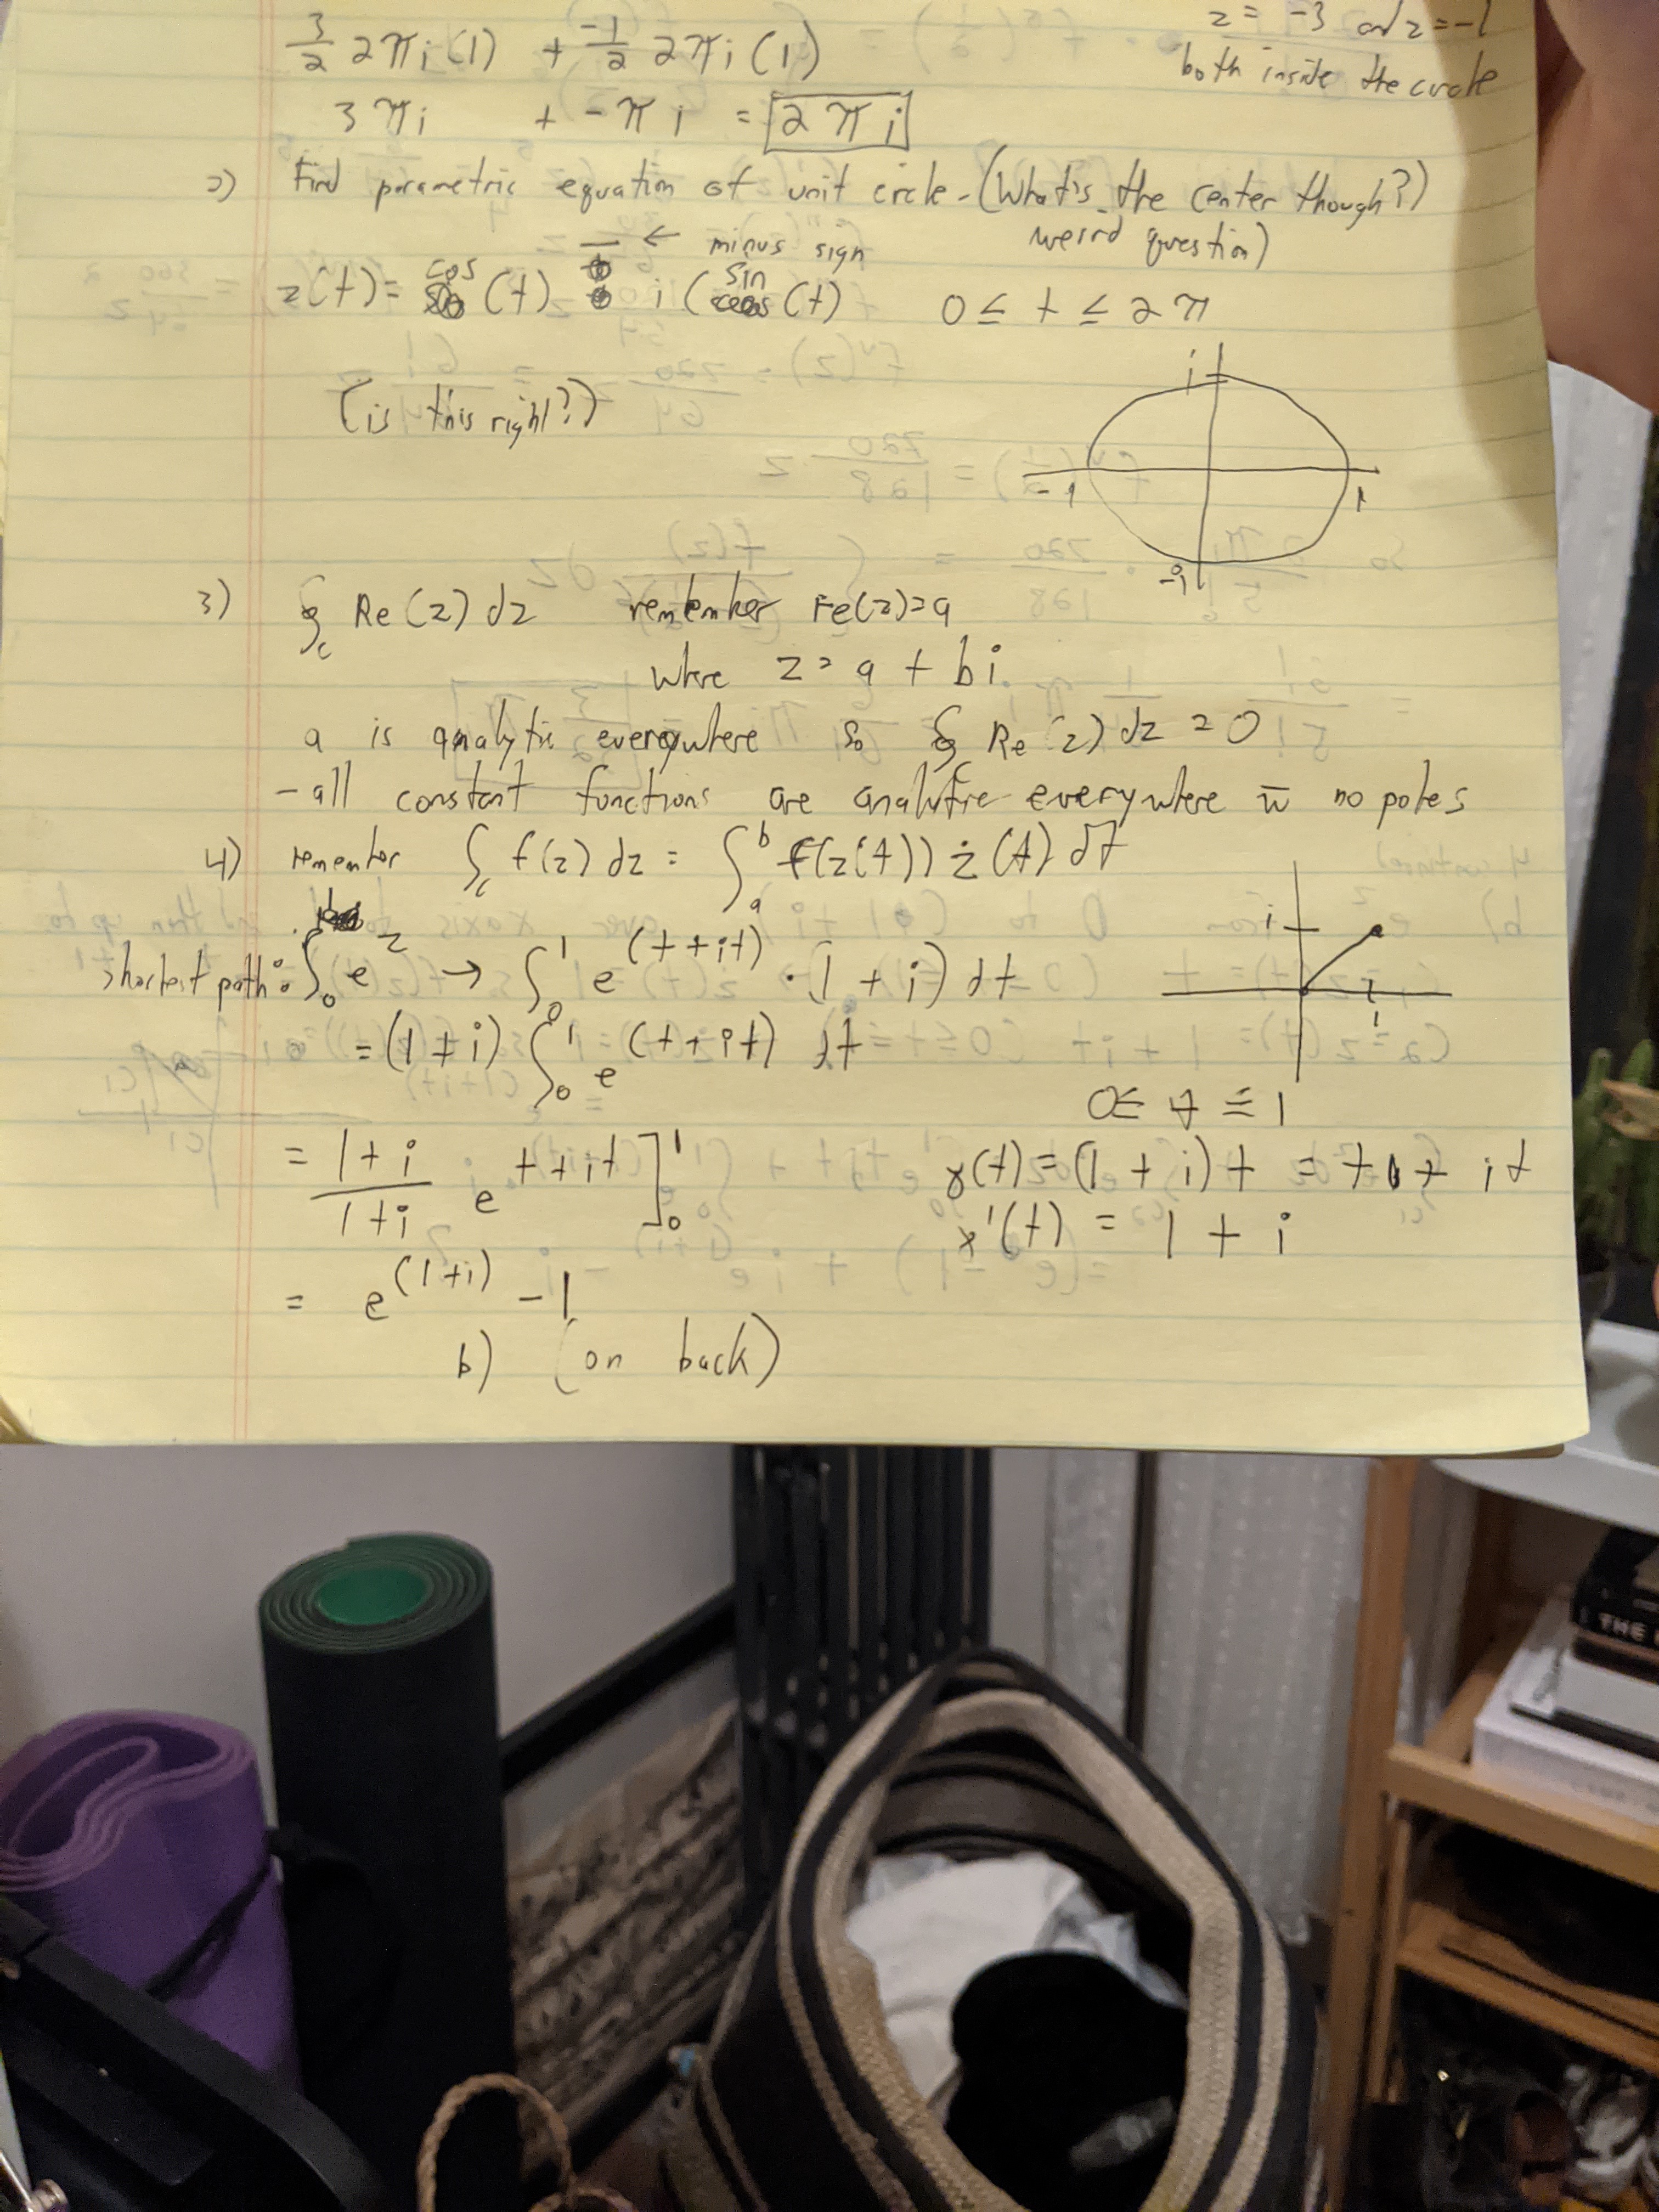 3/2 2πi(1) + -1/2 2πi(1)
z = -3 and z = -1
both inside the circle
3πi + -πi = 2πi
2) Find parametric equation of unit circle - (What's the center though?)
weird question)
← minus sign
z(t) = cos(t) - i(sin(t) 0 ≤ t ≤ 2π
(is this right?)
i
-1 1
-i
3) ∮c Re(z) dz remember Re(z)=a
where z = a + bi
a is analytic everywhere so ∮ Re(z) dz = 0
- all constant functions are analytic everywhere w̄ no poles
4) remember ∫c f(z) dz = ∫a^b f(z(t)) ż(t) dt
shortest path: ∫0 e^z → ∫0^1 e^(t+it) · (1+i) dt
i
1
= (1+i) ∫0^1 e^(t+it) dt
0 ≤ t ≤ 1
= 1+i/1+i e^t+it ]0^1
γ(t) = (1+i)t = t + it
γ'(t) = 1 + i
= e^(1+i) - 1
b) (on back)
THE